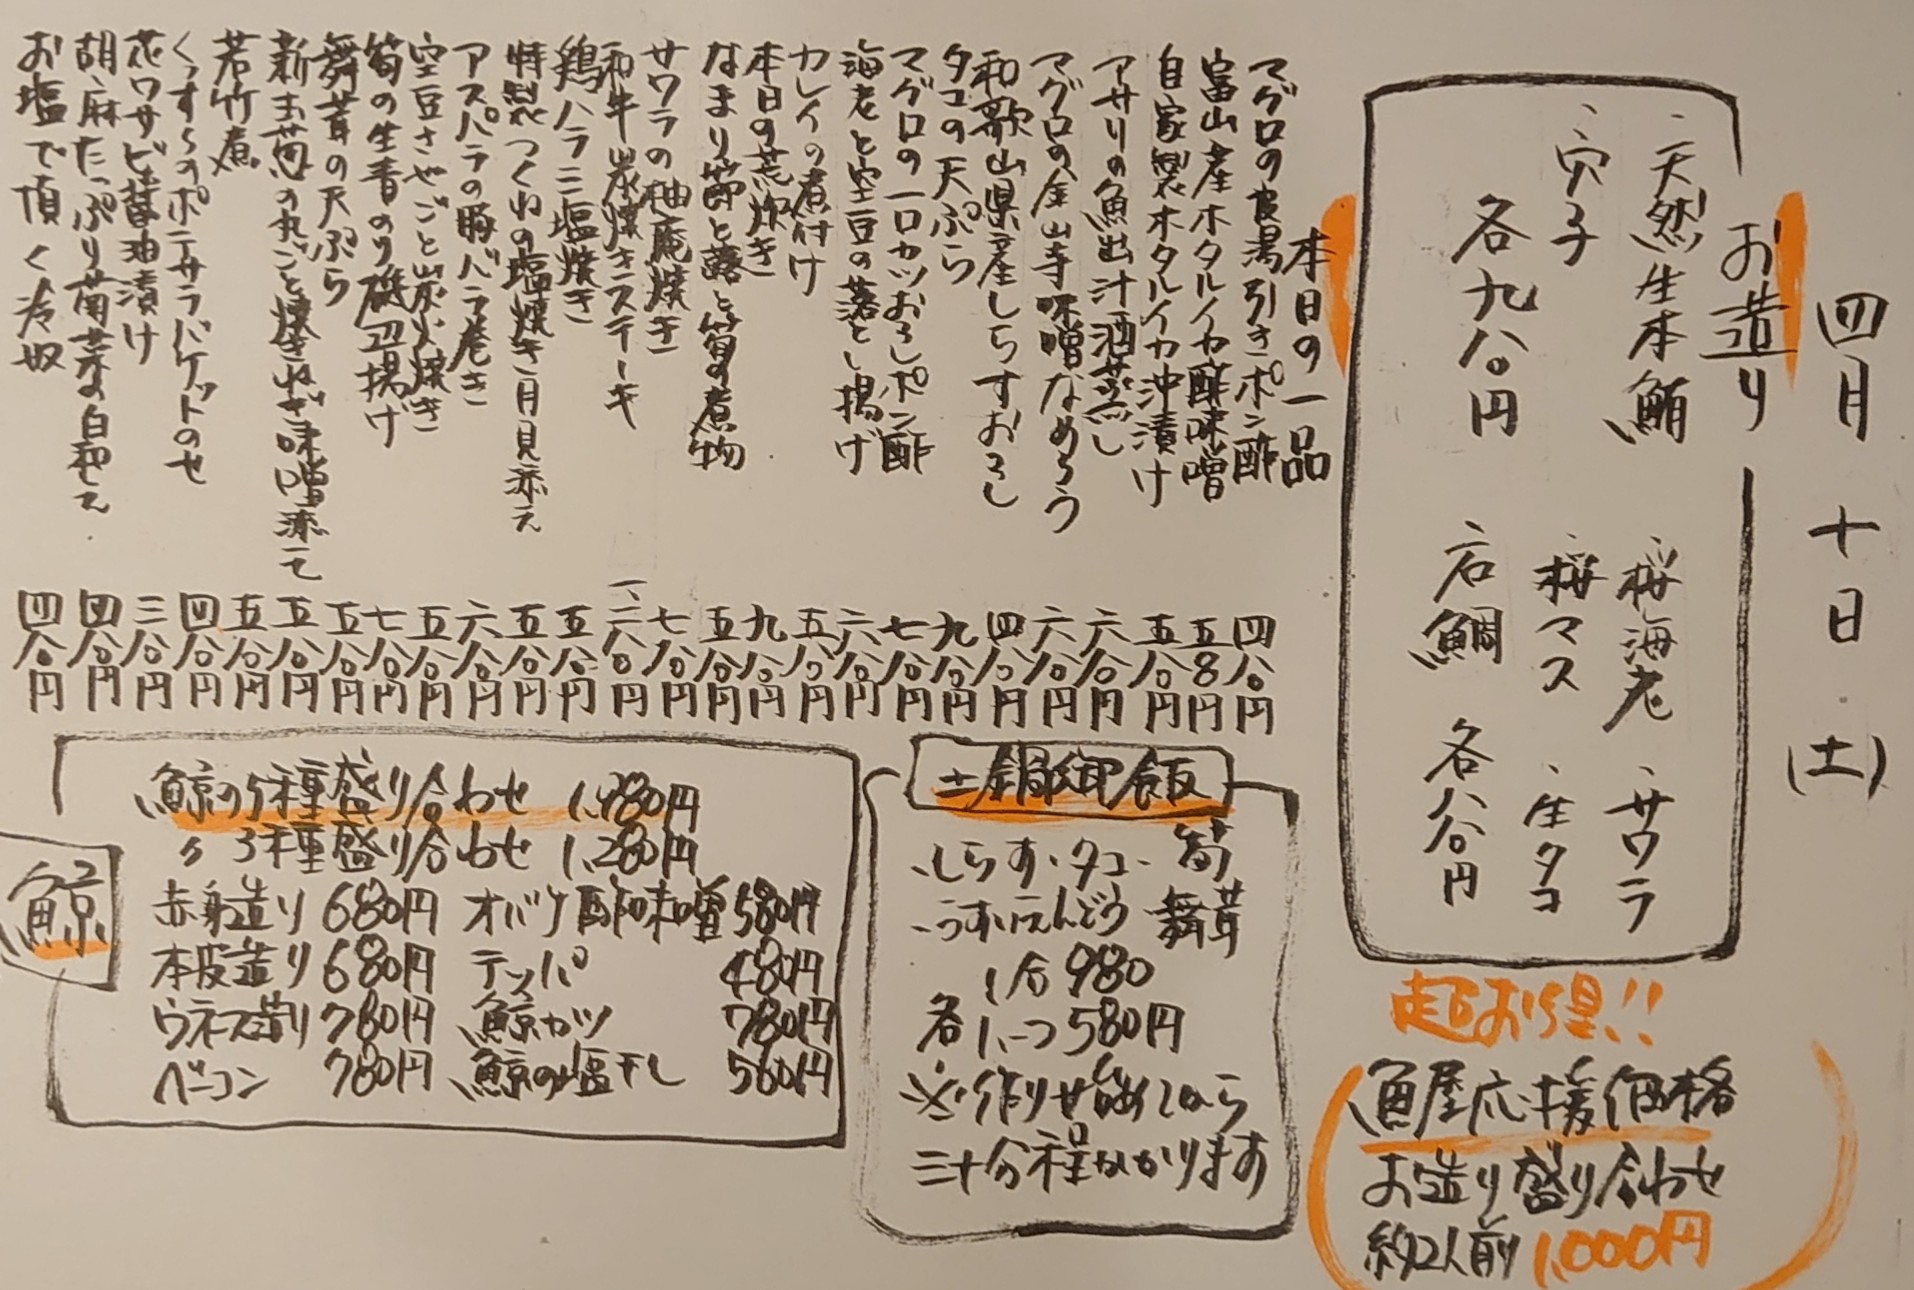 四月十日(土)
お造り
、天然生本鮪
、桜海老
、サワラ
、穴子
、桜マス
、生タコ
各九八〇円
、石鯛
各八八〇円
超お得!!
魚屋応援価格
お造り盛り合わせ
約2人前 1,000円
本日の一品
マグロの皮湯引きポン酢 四八〇円
富山産ホタルイカ酢味噌 五八〇円
自家製ホタルイカ沖漬け 五八〇円
アサリの魚出汁酒蒸し 六八〇円
マグロの金山寺味噌なめろう 六八〇円
和歌山県産しらすおろし 四八〇円
タコの天ぷら 九八〇円
マグロの一口カツおろしポン酢 七八〇円
海老と空豆の落とし揚げ 六八〇円
カレイの煮付け 五八〇円
本日の荒炊き 九八〇円
なまり節と蕗と筍の煮物 五八〇円
サワラの柚庵焼き 七八〇円
和牛炭焼きステーキ 一、二八〇円
鶏ハラミ塩焼き 五八〇円
特製つくねの塩焼き月見添え 五八〇円
アスパラの豚バラ巻き 六八〇円
空豆さやごと炭火焼き 五八〇円
筍の生青のり磯辺揚げ 七八〇円
舞茸の天ぷら 五八〇円
新玉葱の丸ごと焼きねぎ味噌添えて 五八〇円
若竹煮 五八〇円
くっすらのポテサラバケットのせ 四八〇円
花ワサビ醤油漬け 三八〇円
胡麻たっぷり菊菜の白和え 四八〇円
お塩で頂く冷奴 四八〇円
土鍋御飯
、しらす、タコ、筍
、うすいえんどう、舞茸
1合 980
各 1、つ 580円
※作りせ始めてから
三十分程かかります
鯨
鯨の5種盛り合わせ 1,980円
〃 3種盛り合わせ 1,280円
赤身造り 680円 オバケ酢味噌 580円
本皮造り 680円 テッパ 480円
ウネス造り 780円 鯨カツ 780円
ベーコン 780円 鯨の塩干し 560円